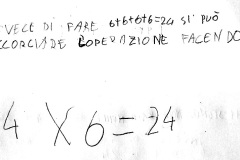 VECE DI FARE 6+6+6+6=24 SI PUÒ
CCORCIARE LOPERAZIONE FACENDO
4 X 6 = 24